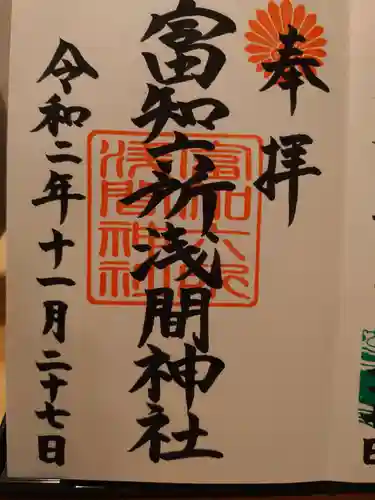 奉拝
富知六所浅間神社
令和二年十一月二十七日
富知六所
浅間神社
日